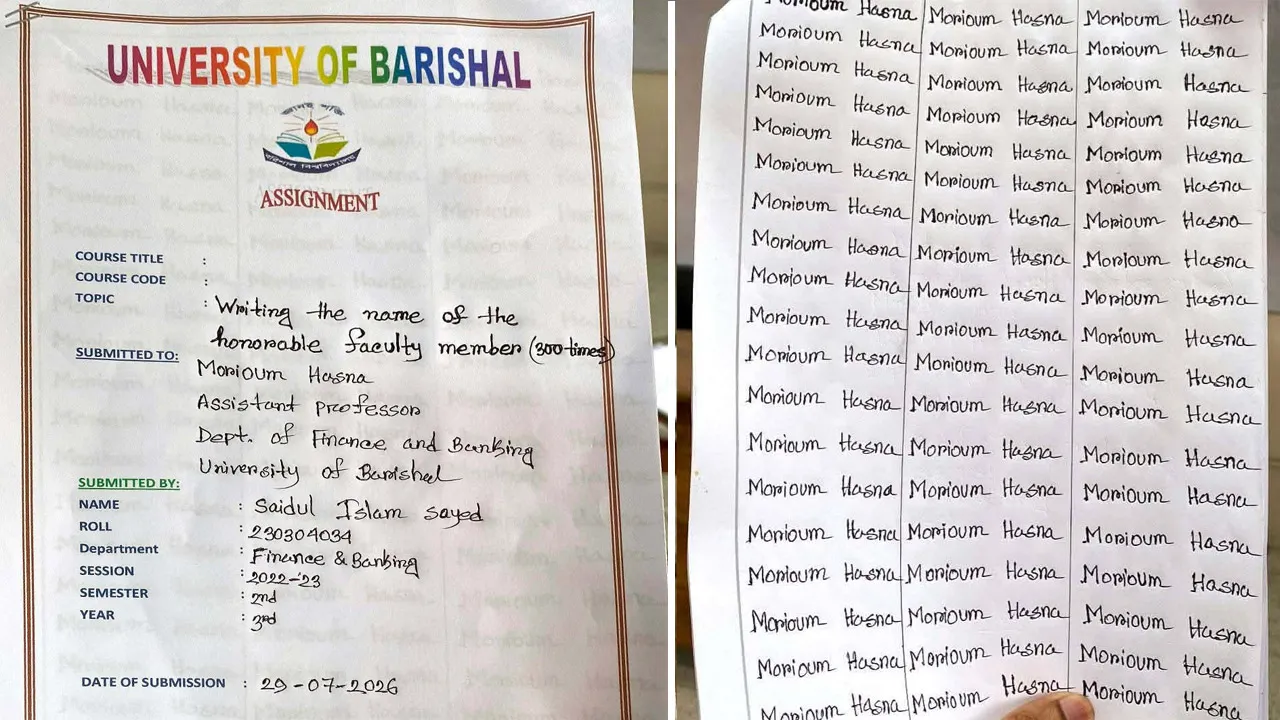 UNIVERSITY OF BARISHAL
বরিশাল বিশ্ববিদ্যালয়
ASSIGNMENT
COURSE TITLE :
COURSE CODE :
TOPIC : Writing the name of the
honorable faculty member (300 times)
SUBMITTED TO:
Morioum Hasna
Assistant professor
Dept. of Finance and Banking
University of Barishal
SUBMITTED BY:
NAME : Saidul Islam sayed
ROLL : 230304034
Department : Finance & Banking
SESSION : 2022-'23
SEMESTER : 2nd
YEAR : 3rd
DATE OF SUBMISSION : 29-07-2026
Morioum Hasna Morioum Hasna Morioum Hasna
Morioum Hasna Morioum Hasna Morioum Hasna
Morioum Hasna Morioum Hasna Morioum Hasna
Morioum Hasna Morioum Hasna Morioum Hasna
Morioum Hasna Morioum Hasna Morioum Hasna
Morioum Hasna Morioum Hasna Morioum Hasna
Morioum Hasna Morioum Hasna Morioum Hasna
Morioum Hasna Morioum Hasna Morioum Hasna
Morioum Hasna Morioum Hasna Morioum Hasna
Morioum Hasna Morioum Hasna Morioum Hasna
Morioum Hasna Morioum Hasna Morioum Hasna
Morioum Hasna Morioum Hasna Morioum Hasna
Morioum Hasna Morioum Hasna Morioum Hasna
Morioum Hasna Morioum Hasna Morioum Hasna
Morioum Hasna Morioum Hasna Morioum Hasna
Morioum Hasna Morioum Hasna Morioum Hasna
Morioum Hasna Morioum Hasna Morioum Hasna
Morioum Hasna Morioum Hasna Morioum Hasna
Morioum Hasna Morioum Hasna Morioum Hasna